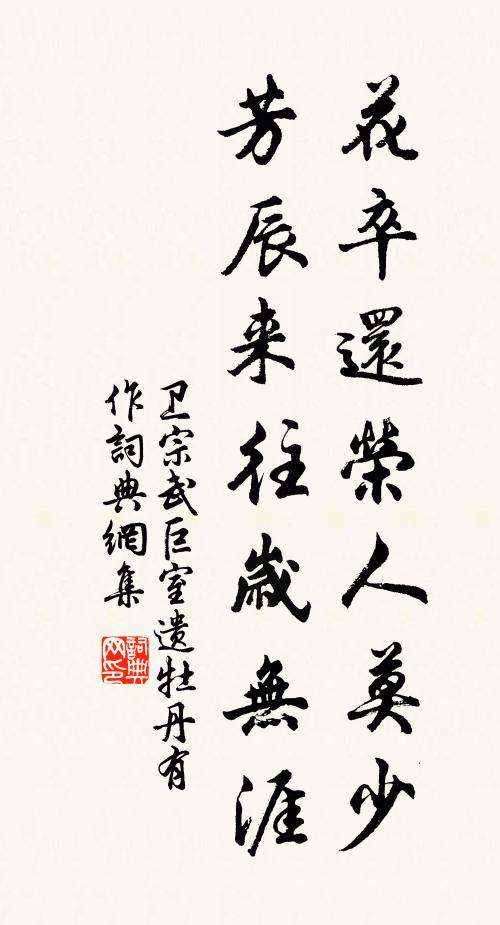 花卒還榮人莫少
芳辰来往歲無涯
卫宗武巨室遗牡丹有
作詞典網集
詞典网印